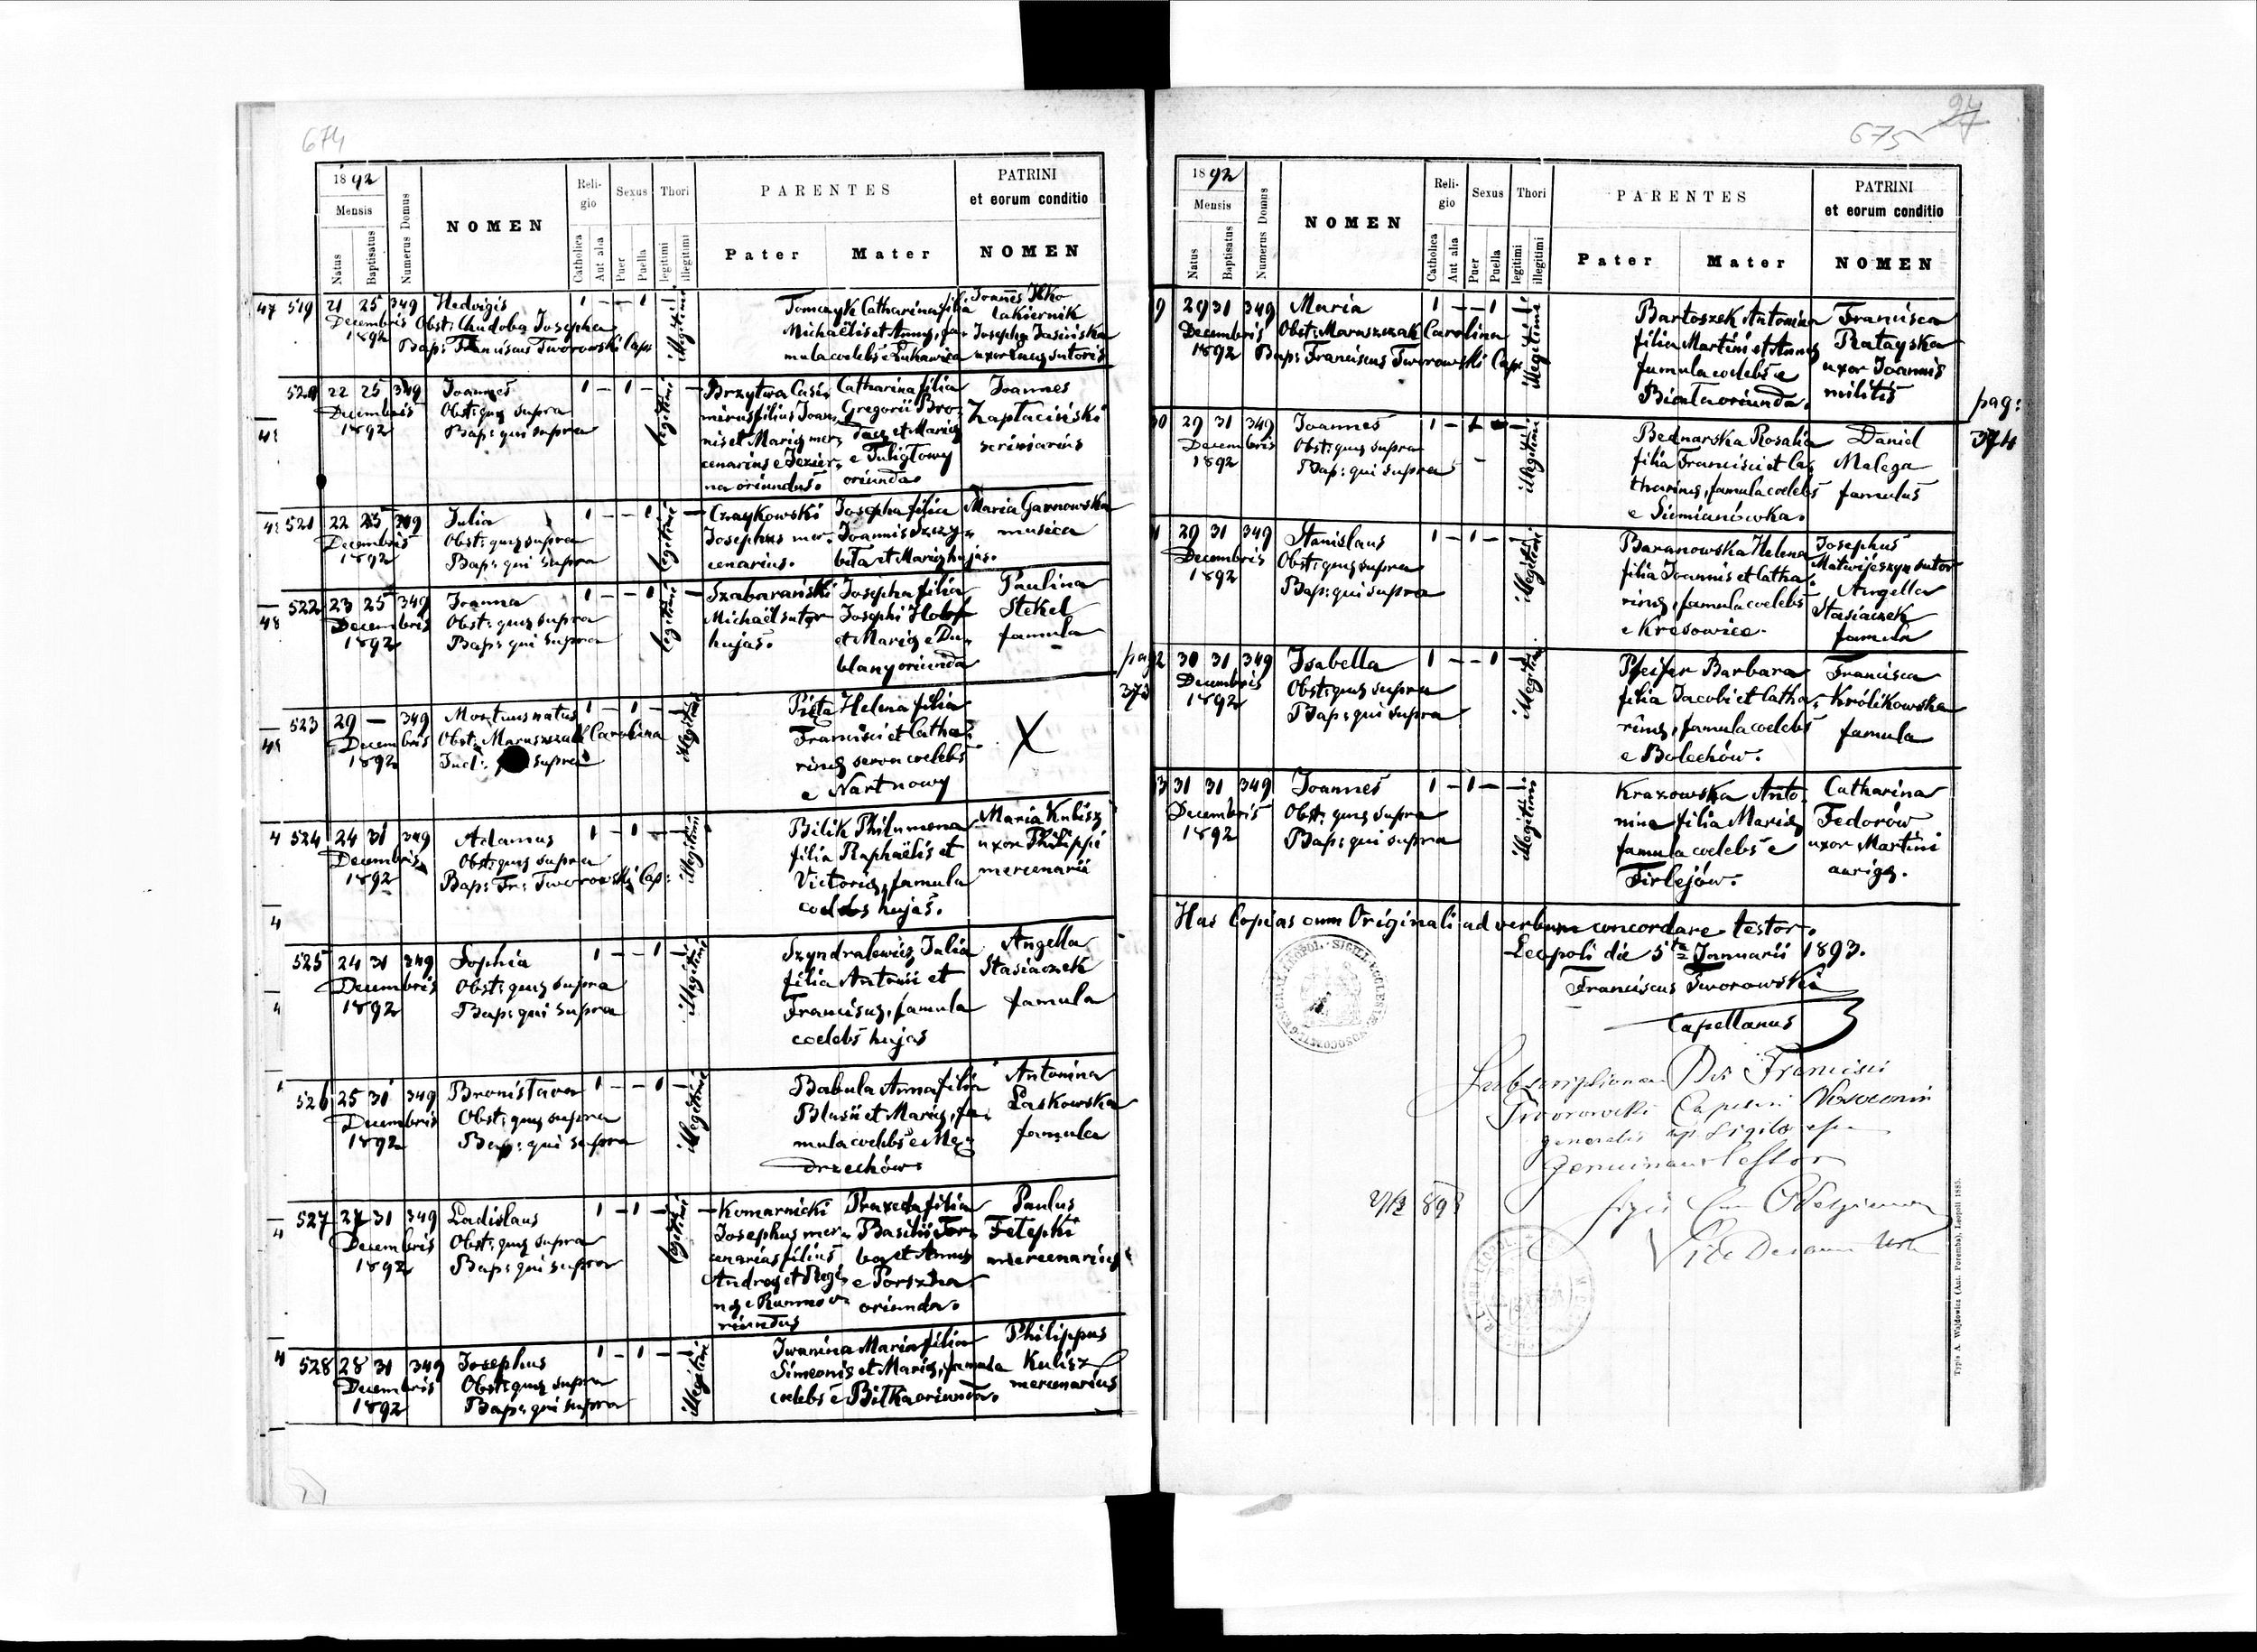 674
1892
Mensis
Natus
Baptisatus
Numerus Domus
NOMEN
Religio
Catholica
Aut alia
Sexus
Puer
Puella
Thori
legitimi
illegitimi
PARENTES
Pater
Mater
PATRINI
et eorum conditio
NOMEN
519 21 25 349 Hedvigis 1 – – 1 illegitimi
Decembris 1892
Obst: Chudoba Josepha
Bap: Franciscus Tworowski Cap:
Tomczyk Catharina filia
Michaëlis et Annę, fa-
mula coelebs e Łukawica
Joannes Ilko
lakiernik
Josepha Jasińska
uxor Lucę sutoris
520 22 25 349 Joannes 1 – 1 – legitimi
Decembris 1892
Obst: quę supra
Bap: qui supra
Brzytwa Casi-
mirus filius Joan-
nis et Marię mer-
cenarius e Jezier-
na oriundus.
Catharina filia
Gregorii Bro-
dacz et Marię
e Tuligłowy
oriunda.
Joannes
Zapłaciński
scriniarius
521 22 25 349 Julia 1 – – 1 legitimi
Decembris 1892
Obst: quę supra
Bap: qui supra
Czaykowski
Josephus mer-
cenarius.
Josepha filia
Joannis Szczy-
beta et Marię hujas.
Maria Garnowska
musica
522 23 25 349 Joanna 1 – – 1 legitimi
Decembris 1892
Obst: quę supra
Bap: qui supra
Szabarański
Michaël sutor
hujas.
Josepha filia
Josephi
et Marię e Du-
blany oriunda
Paulina
Stekel
famula
523 29 – 349 Mortuus natus 1 – 1 – illegitimi
Decembris 1892
Obst: Maruszczak Carolina
supra
Pięta Helena filia
Francisci et Catha-
rinę serva coelebs
e Nart nowy
X
524 24 31 349 Adamus 1 – 1 – illegitimi
Decembris 1892
Obst: quę supra
Bap: Fr: Tworowski Cap:
Bilik Philumena
filia Raphaëlis et
Victorię, famula
coelebs hujas.
Maria Kulisz
uxor Philippi
mercenarii
525 24 31 349 Sophia 1 – – 1 illegitimi
Decembris 1892
Obst: quę supra
Bap: qui supra
Szyndralewicz Julia
filia Antonii et
Franciscę, famula
coelebs hujas
Angella
Stasiaczek
famula
526 25 31 349 Bronislava 1 – – 1 illegitimi
Decembris 1892
Obst: quę supra
Bap: qui supra
Babula Anna filia
Blasii et Marię, fa-
mula coelebs e Mę-
drzechów.
Antonina
Laskowska
famula
527 27 31 349 Ladislaus 1 – 1 – legitimi
Decembris 1892
Obst: quę supra
Bap: qui supra
Komarnicki
Josephus mer-
cenarius filius
Andreę et Regi-
nę e Rumno o-
riundus
Praxeda filia
Basilii Tor-
ba et Annę
e Porszna
oriunda.
Paulus
Fetepki
mercenarius
528 28 31 349 Josephus 1 – 1 – illegitimi
Decembris 1892
Obst: quę supra
Bap: qui supra
Iwanina Maria filia
Simeonis et Marię, famula
coelebs e Biłka oriunda.
Philippus
Kulisz
mercenarius
675
1892
Mensis
Natus
Baptisatus
Numerus Domus
NOMEN
Religio
Catholica
Aut alia
Sexus
Puer
Puella
Thori
legitimi
illegitimi
PARENTES
Pater
Mater
PATRINI
et eorum conditio
NOMEN
9 29 31 349 Maria 1 – – 1 illegitimi
Decembris 1892
Obst: Maruszczak Carolina
Bap: Franciscus Tworowski Cap:
Bartoszek Antonina
filia Martini et Annę
famula coelebs e
Bienta oriunda.
Francisca
Ratayska
uxor Joannis
militis
pag:
374
30 29 31 349 Joannes 1 – 1 – illegitimi
Decembris 1892
Obst: quę supra
Bap: qui supra
Bednarska Rosalia
filia Francisci et Ca-
tharinę, famula coelebs
e Siemianówka.
Daniel
Malega
famulus
29 31 349 Stanislaus 1 – 1 – illegitimi
Decembris 1892
Obst: quę supra
Bap: qui supra
Baranowska Helena
filia Joannis et Catha-
rinę, famula coelebs
e Kresowice.
Josephus
Matwijeszyn sutor
Angella
Stasiaczek
famula
pag
373
2 30 31 349 Isabella 1 – – 1 illegitimi
Decembris 1892
Obst: quę supra
Bap: qui supra
Pfeifer Barbara
filia Jacobi et Catha-
rinę, famula coelebs
e Bolechów.
Francisca
Królikowska
famula
3 31 31 349 Joannes 1 – 1 – illegitimi
Decembris 1892
Obst: quę supra
Bap: qui supra
Krazowska Anto-
nina filia Marię
famula coelebs e
Firlejów.
Catharina
Fedorów
uxor Martini
aurigę.
Has Copias cum Originali ad verbum concordare testor.
Leopoli die 5ta Januarii 1893.
Franciscus Tworowski
Capellanus
Subscriptionem Dni Francisci
Tworowski Capellani Nosocomii
generalis Sigilo esse
genuinam testor
Typis A. Wajdowicz (Ant. Poremba), Leopoli 1885.